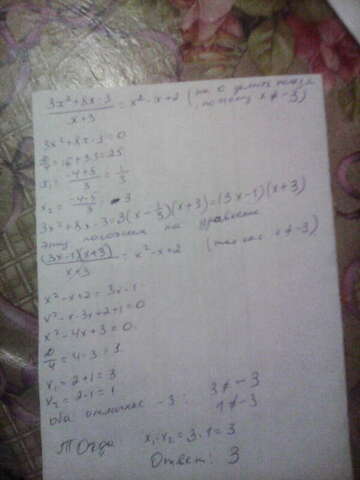 (3x²+8x-3)/(x+3) = x²-x+2 (на 0 делить нельзя, потому x≠-3)
3x²+8x-3=0
D/4=16+33=25
x₁ = (-4+5)/3 = 1/3
x₂ = (-4-5)/3 = -3
3x²+8x-3=3(x-1/3)(x+3)=(3x-1)(x+3)
(3x-1)(x+3)/(x+3) = x²-x+2 (так как x≠-3)
x²-x+2=3x-1
x²-x-3x+2+1=0
x²-4x+3=0
D/4=4-3=1
x₁=2+1=3
x₂=2-1=1
оба отличные -3: 3≠-3
1≠-3
Тогда x₁·x₂=3·1=3
Ответ: 3